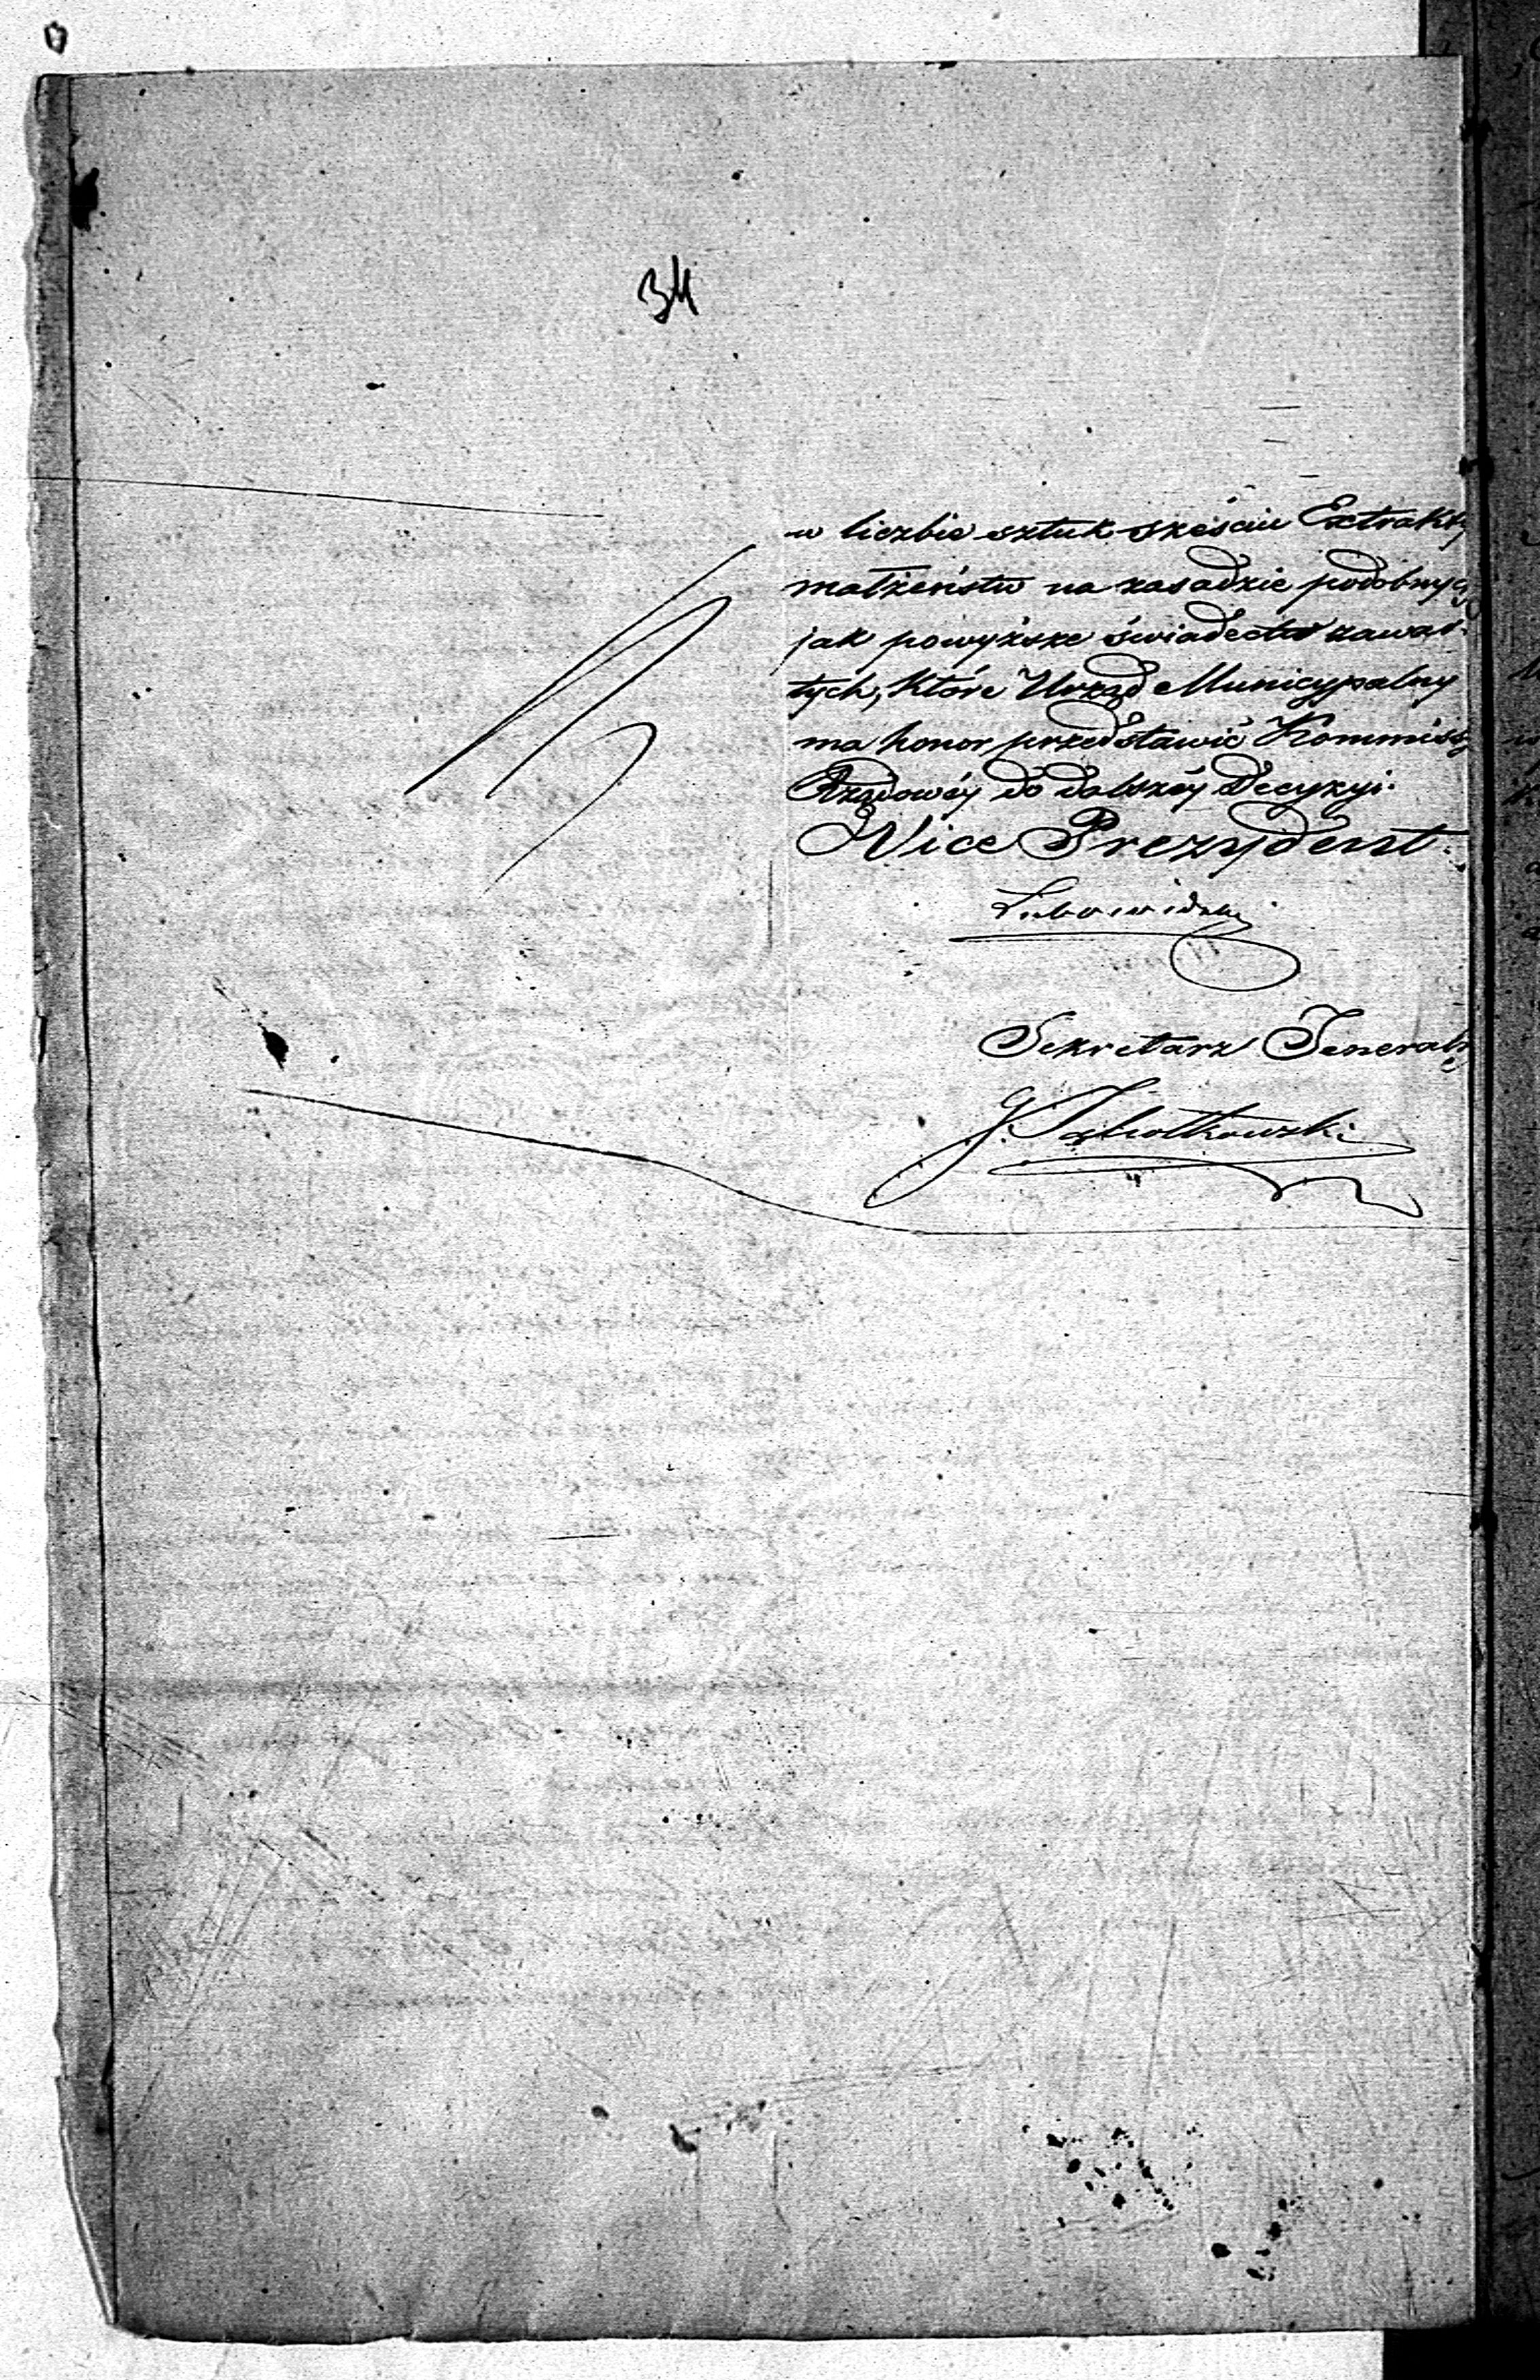 34
w liczbie sztuk sześciu Extrakt
małżeństw na zasadzie podobnyc
jak powyższe świadectw zawar-
tych, które Urząd Municypalny
ma honor przedstawić Kommiss
Rządowéy do dalszéy Decyzyi.
Vice Prezydent.
Lubowidzki
Sekretarz Jeneraln
G.